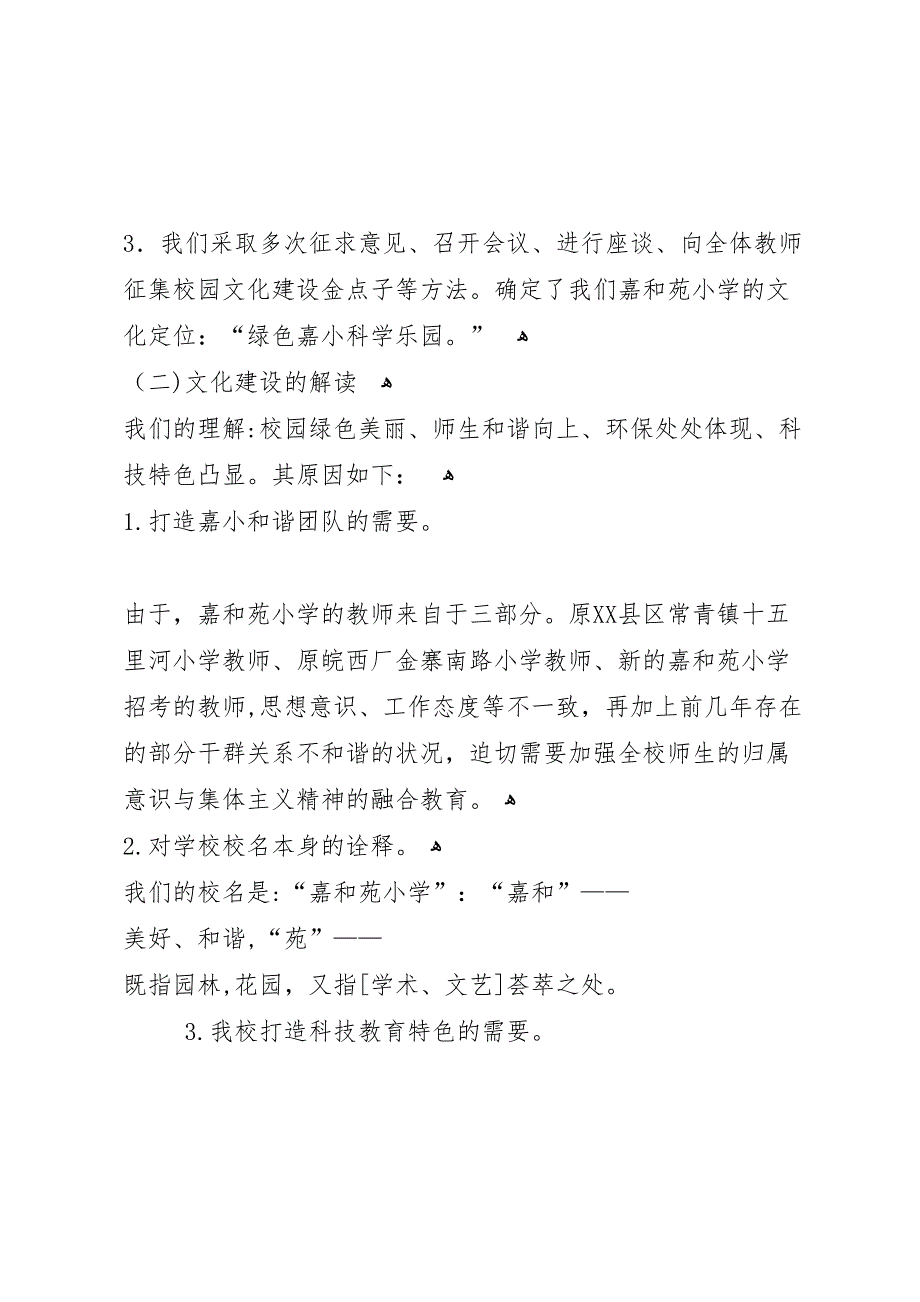 3．我们采取多次征求意见、召开会议、进行座谈、向全体教师
征集校园文化建设金点子等方法。确定了我们嘉和苑小学的文
化定位：“绿色嘉小科学乐园。” ﻫ
（二)文化建设的解读 ﻫ
我们的理解:校园绿色美丽、师生和谐向上、环保处处体现、科
技特色凸显。其原因如下： ﻫ
1.打造嘉小和谐团队的需要。
由于，嘉和苑小学的教师来自于三部分。原XX县区常青镇十五
里河小学教师、原皖西厂金寨南路小学教师、新的嘉和苑小学
招考的教师,思想意识、工作态度等不一致，再加上前几年存在
的部分干群关系不和谐的状况，迫切需要加强全校师生的归属
意识与集体主义精神的融合教育。 ﻫ
2.对学校校名本身的诠释。 ﻫ
我们的校名是:“嘉和苑小学”：“嘉和”——
美好、和谐,“苑”——
既指园林,花园，又指[学术、文艺]荟萃之处。
3.我校打造科技教育特色的需要。